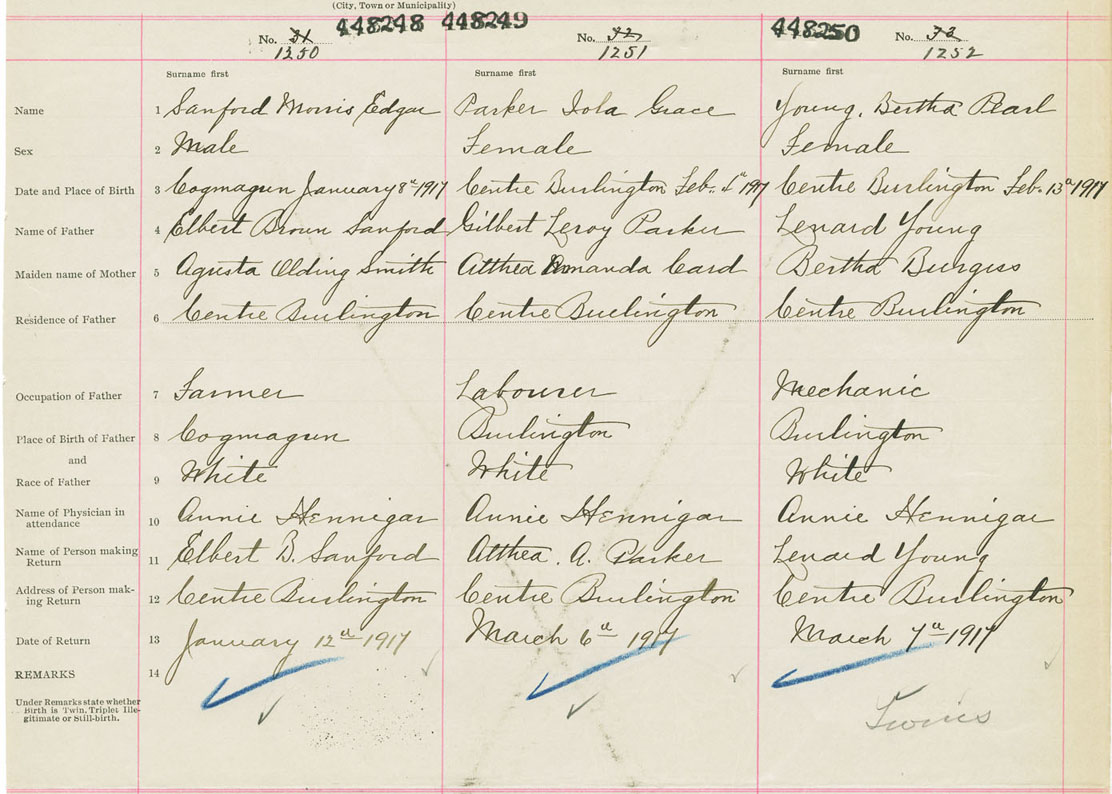 (City, Town or Municipality)
448248 448249 448250
No. 31 No. 32 No. 33
1250 1251 1252
Surname first Surname first Surname first
Name 1 Sanford Morris Edgar Parker Iola Grace Young, Bertha Pearl
Sex 2 Male Female Female
Date and Place of Birth 3 Cogmagun January 8th 1917 Centre Burlington Feb. 4th 1917 Centre Burlington Feb. 13th 1917
Name of Father 4 Elbert Brown Sanford Gilbert Leroy Parker Lenard Young
Maiden name of Mother 5 Agusta Olding Smith Atthea Amanda Card Bertha Burgess
Residence of Father 6 Centre Burlington Centre Burlington Centre Burlington
Occupation of Father 7 Farmer Labourer Mechanic
Place of Birth of Father 8 Cogmagun Burlington Burlington
and
Race of Father 9 White White White
Name of Physician in attendance 10 Annie Hennigar Annie Hennigar Annie Hennigar
Name of Person making Return 11 Elbert B. Sanford Atthea. A. Parker Lenard Young
Address of Person making Return 12 Centre Burlington Centre Burlington Centre Burlington
Date of Return 13 January 12th 1917 March 6th 1917 March 7th 1917
REMARKS 14
Under Remarks state whether Birth is Twin, Triplet Illegitimate or Still-birth.
Twins